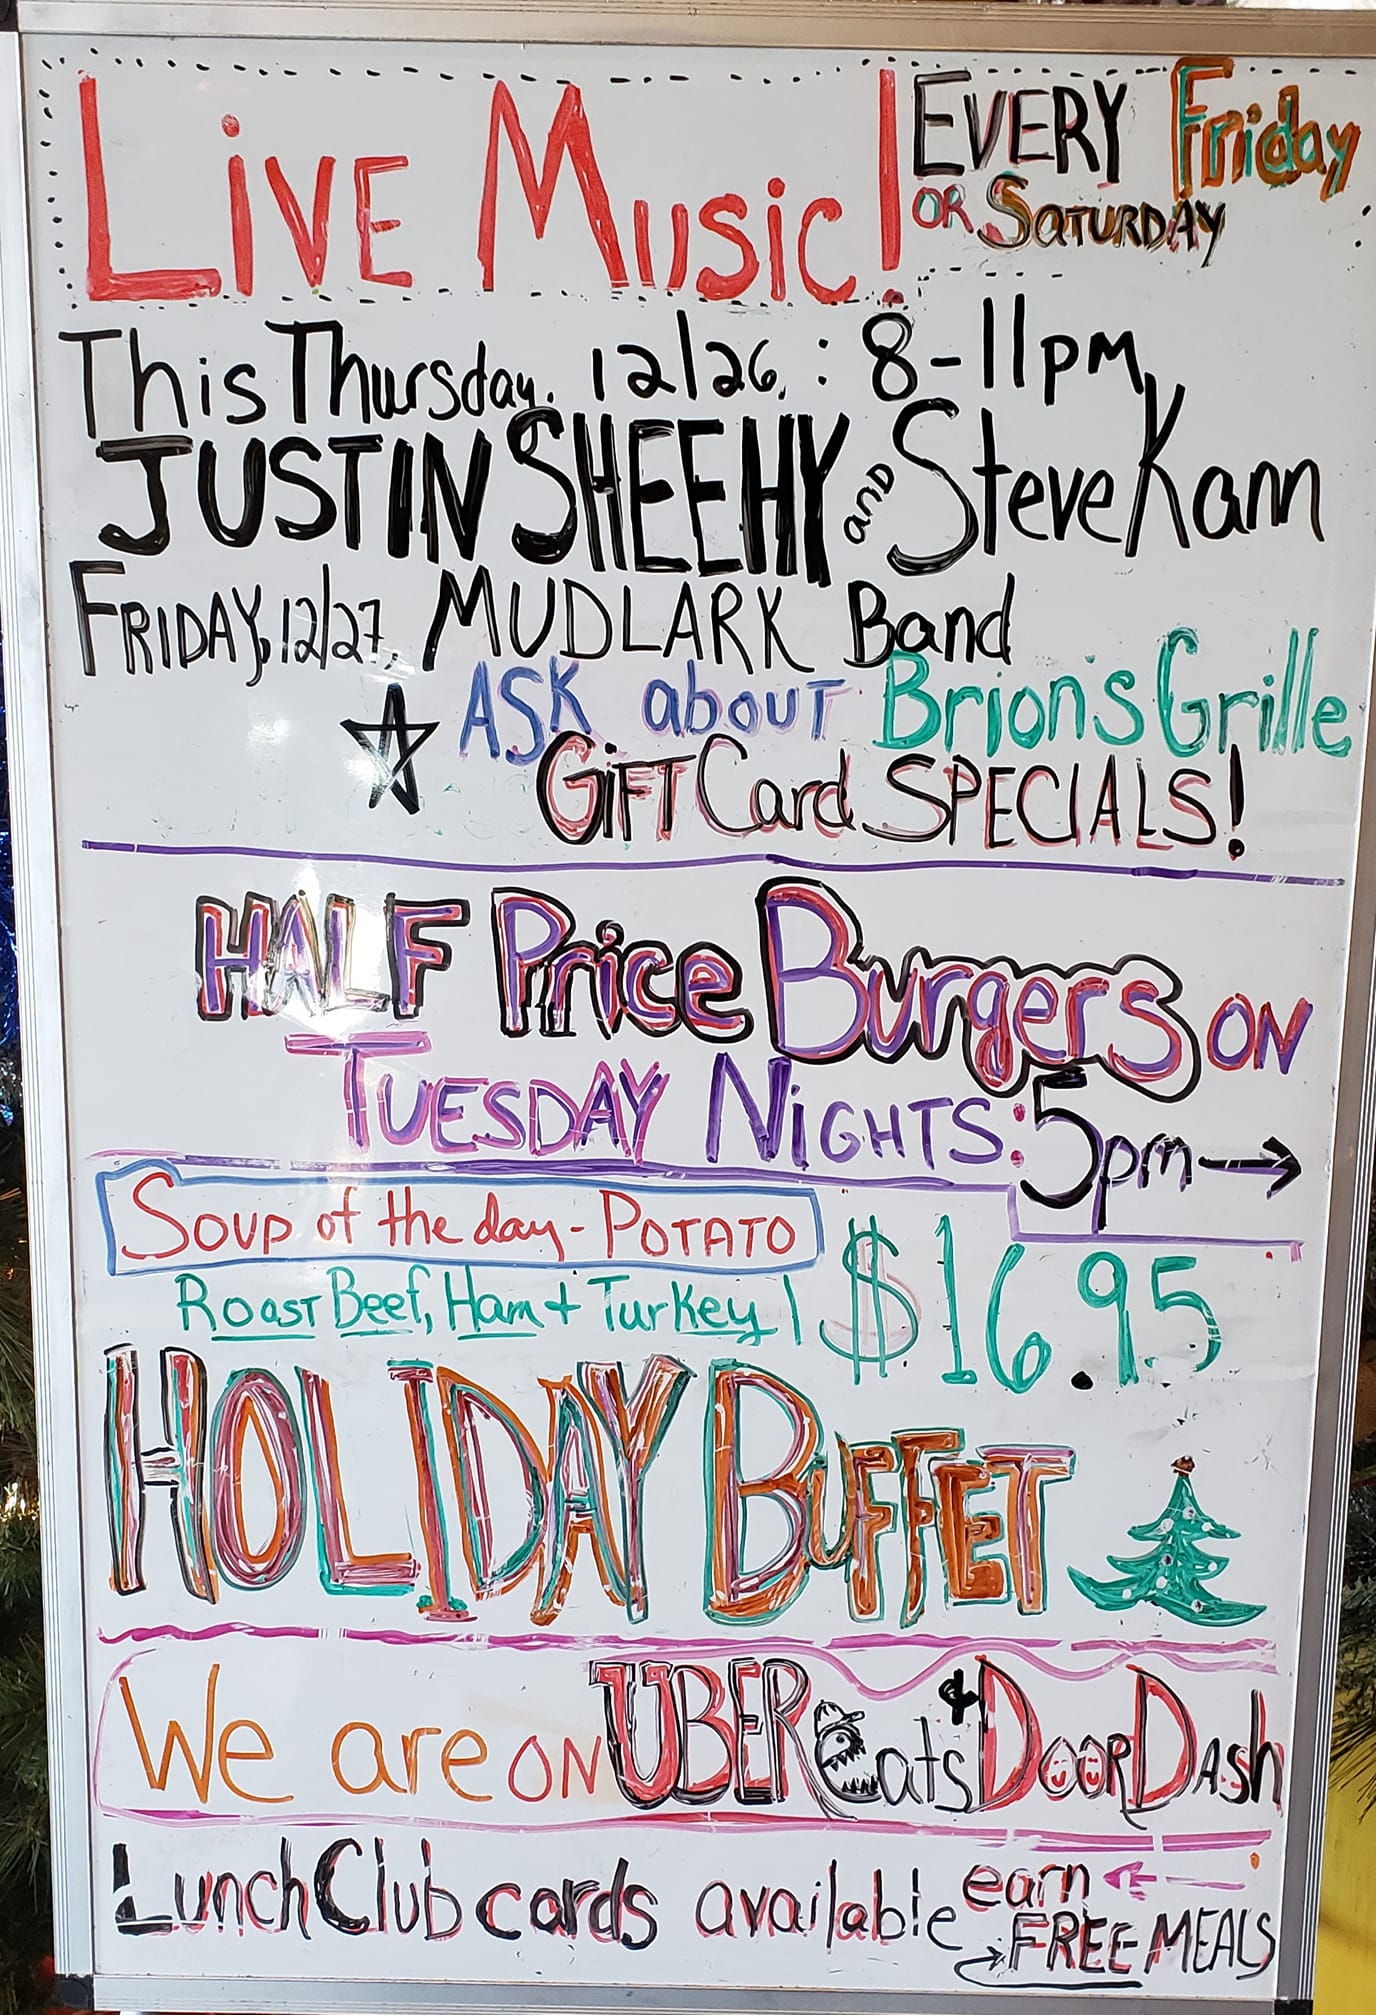 LiVE MusiC! EVERY Friday
OR SATURDAY
This Thursday, 12/26, : 8-11pm,
JUSTIN SHEEHY and Steve Kann
FRIDAY, 12/27, MUDLARK Band
ASK about Brion's Grille
GiFT Card SPECIALS!
HALF Price Burgers ON
TUESDAY NiGHTS: 5pm →
Soup of the day - POTATO
Roast Beef, Ham + Turkey! $16.95
HOLIDAY BUFFET
We are ON UBER Eats & DOORDASH
Lunch Club cards available earn ←
→ FREE MEALS